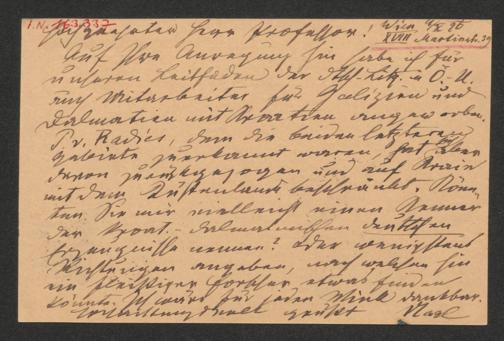 I.N. 163.337
Wien, 4/X 96
Hochgeehrter Herr Professor! XVIII Martinstr. 39
Auf Ihre Anregung hin habe ich für
unseren Leitfaden der dtsch. Lit. in Ö.-U.
auch Mitarbeiter für Galizien und
Dalmatien mit Kroatien angeworben.
P. v. Radics, dem die beiden letzteren
Gebiete zuerkannt waren, hat sich aber
davon zurückgezogen und auf Krain
mit dem Küstenlande beschränkt. Könn-
ten Sie mir vielleicht einen Kenner
der kroat.-dalmatinischen deutschen
Erzeugnisse nennen? oder wenigstens
Richtungen angeben, nach welchen hin
ein fleißiger Forscher etwas finden
könnte. Ich wäre für jeden Wink dankbar.
Hochachtungsvoll grüßt Nagl